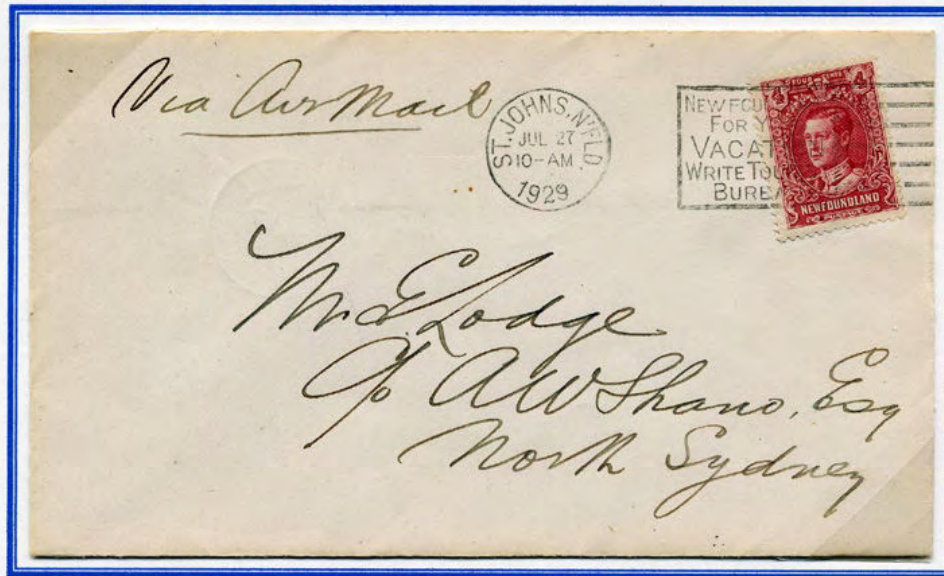 Via Air Mail
ST. JOHNS, N'FLD.
JUL 27
10-AM
1929
NEWFOU
FOR Y
VACAT
WRITE TOU
BUREA
4 FOUR CENTS 4
NEWFOUNDLAND
POSTAGE
Mr E Lodge
c/o A W Shano, Esq
North Sydney